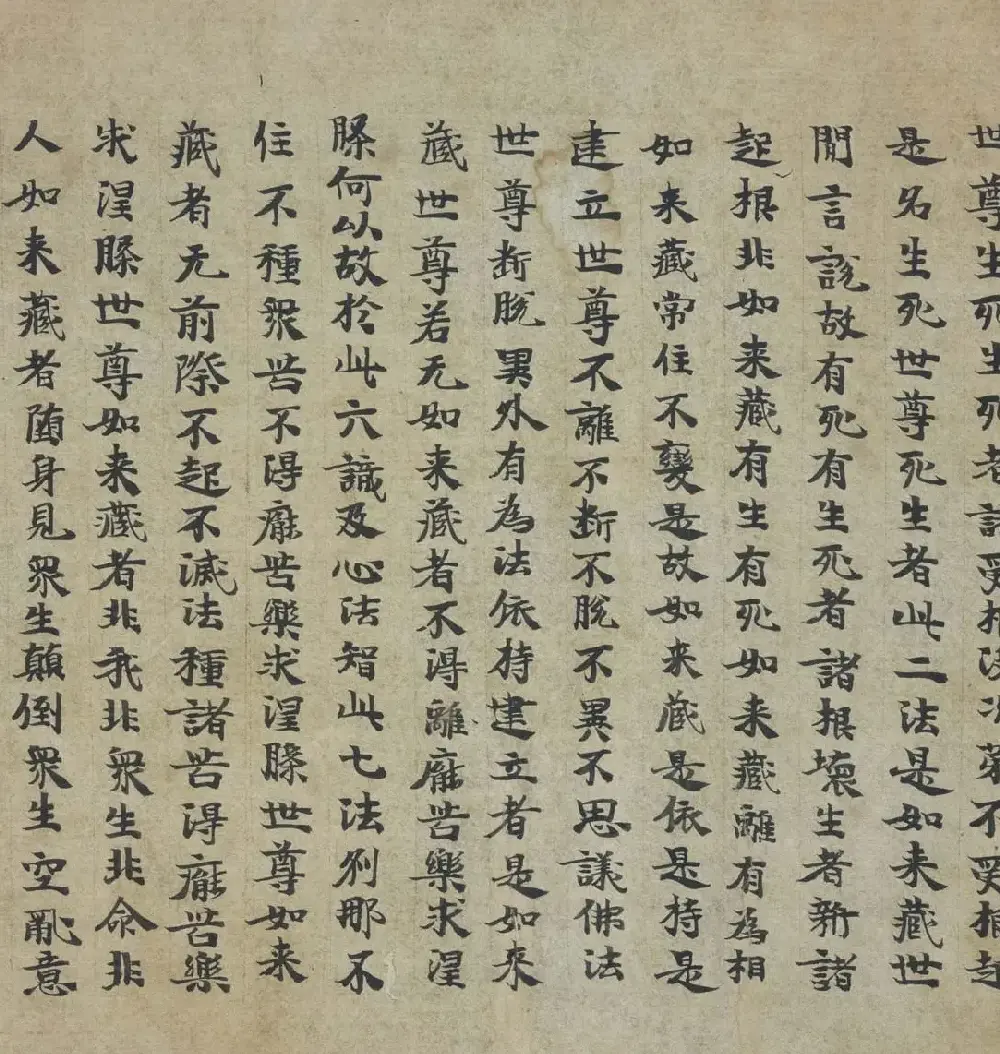 世尊生死生死者諸受根沒次苐不受根起
是名生死世尊死生者此二法是如来藏世
閒言說故有死有生死者諸根壞生者新諸
起根非如来藏有生有死如来藏離有為相
如来藏常住不變是故如来藏是依是持是
建立世尊不離不断不脫不異不思議佛法
世尊断脫異外有為法依持建立者是如来
藏世尊若无如来藏者不得離猒苦樂求涅
槃何以故於此六識及心法智此七法刹那不
住不種衆苦不得猒苦樂求涅槃世尊如来
藏者无前際不起不滅法種諸苦得猒苦樂
求涅槃世尊如来藏者非我非衆生非命非
人如来藏者随身見衆生顛倒衆生空亂意